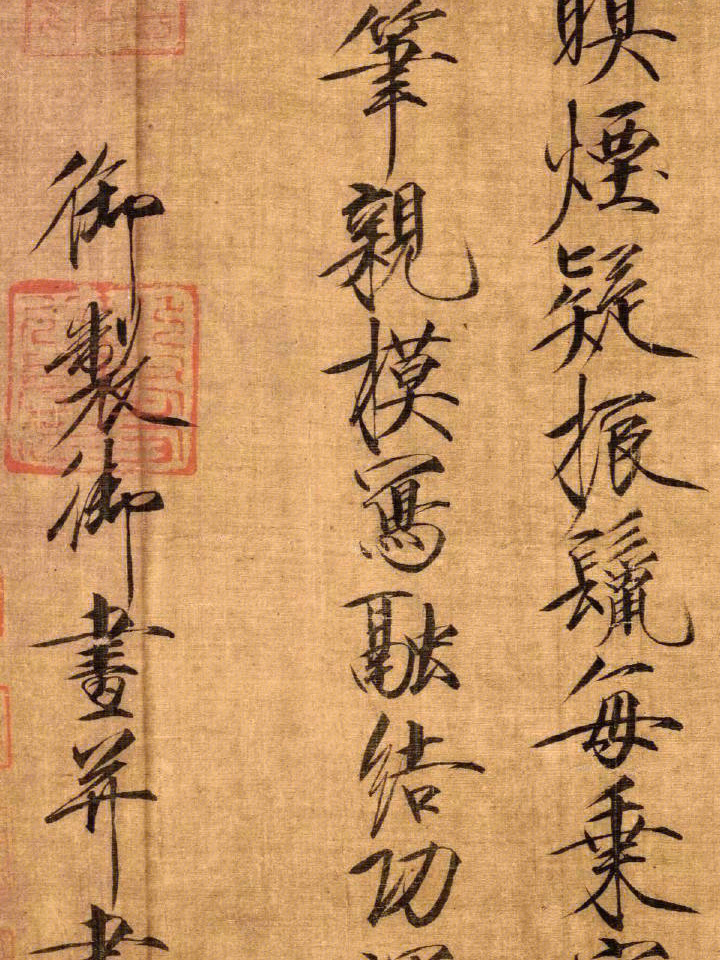 暝煙疑振鬣每乗
筆親模寫融結功
御製御畫并書